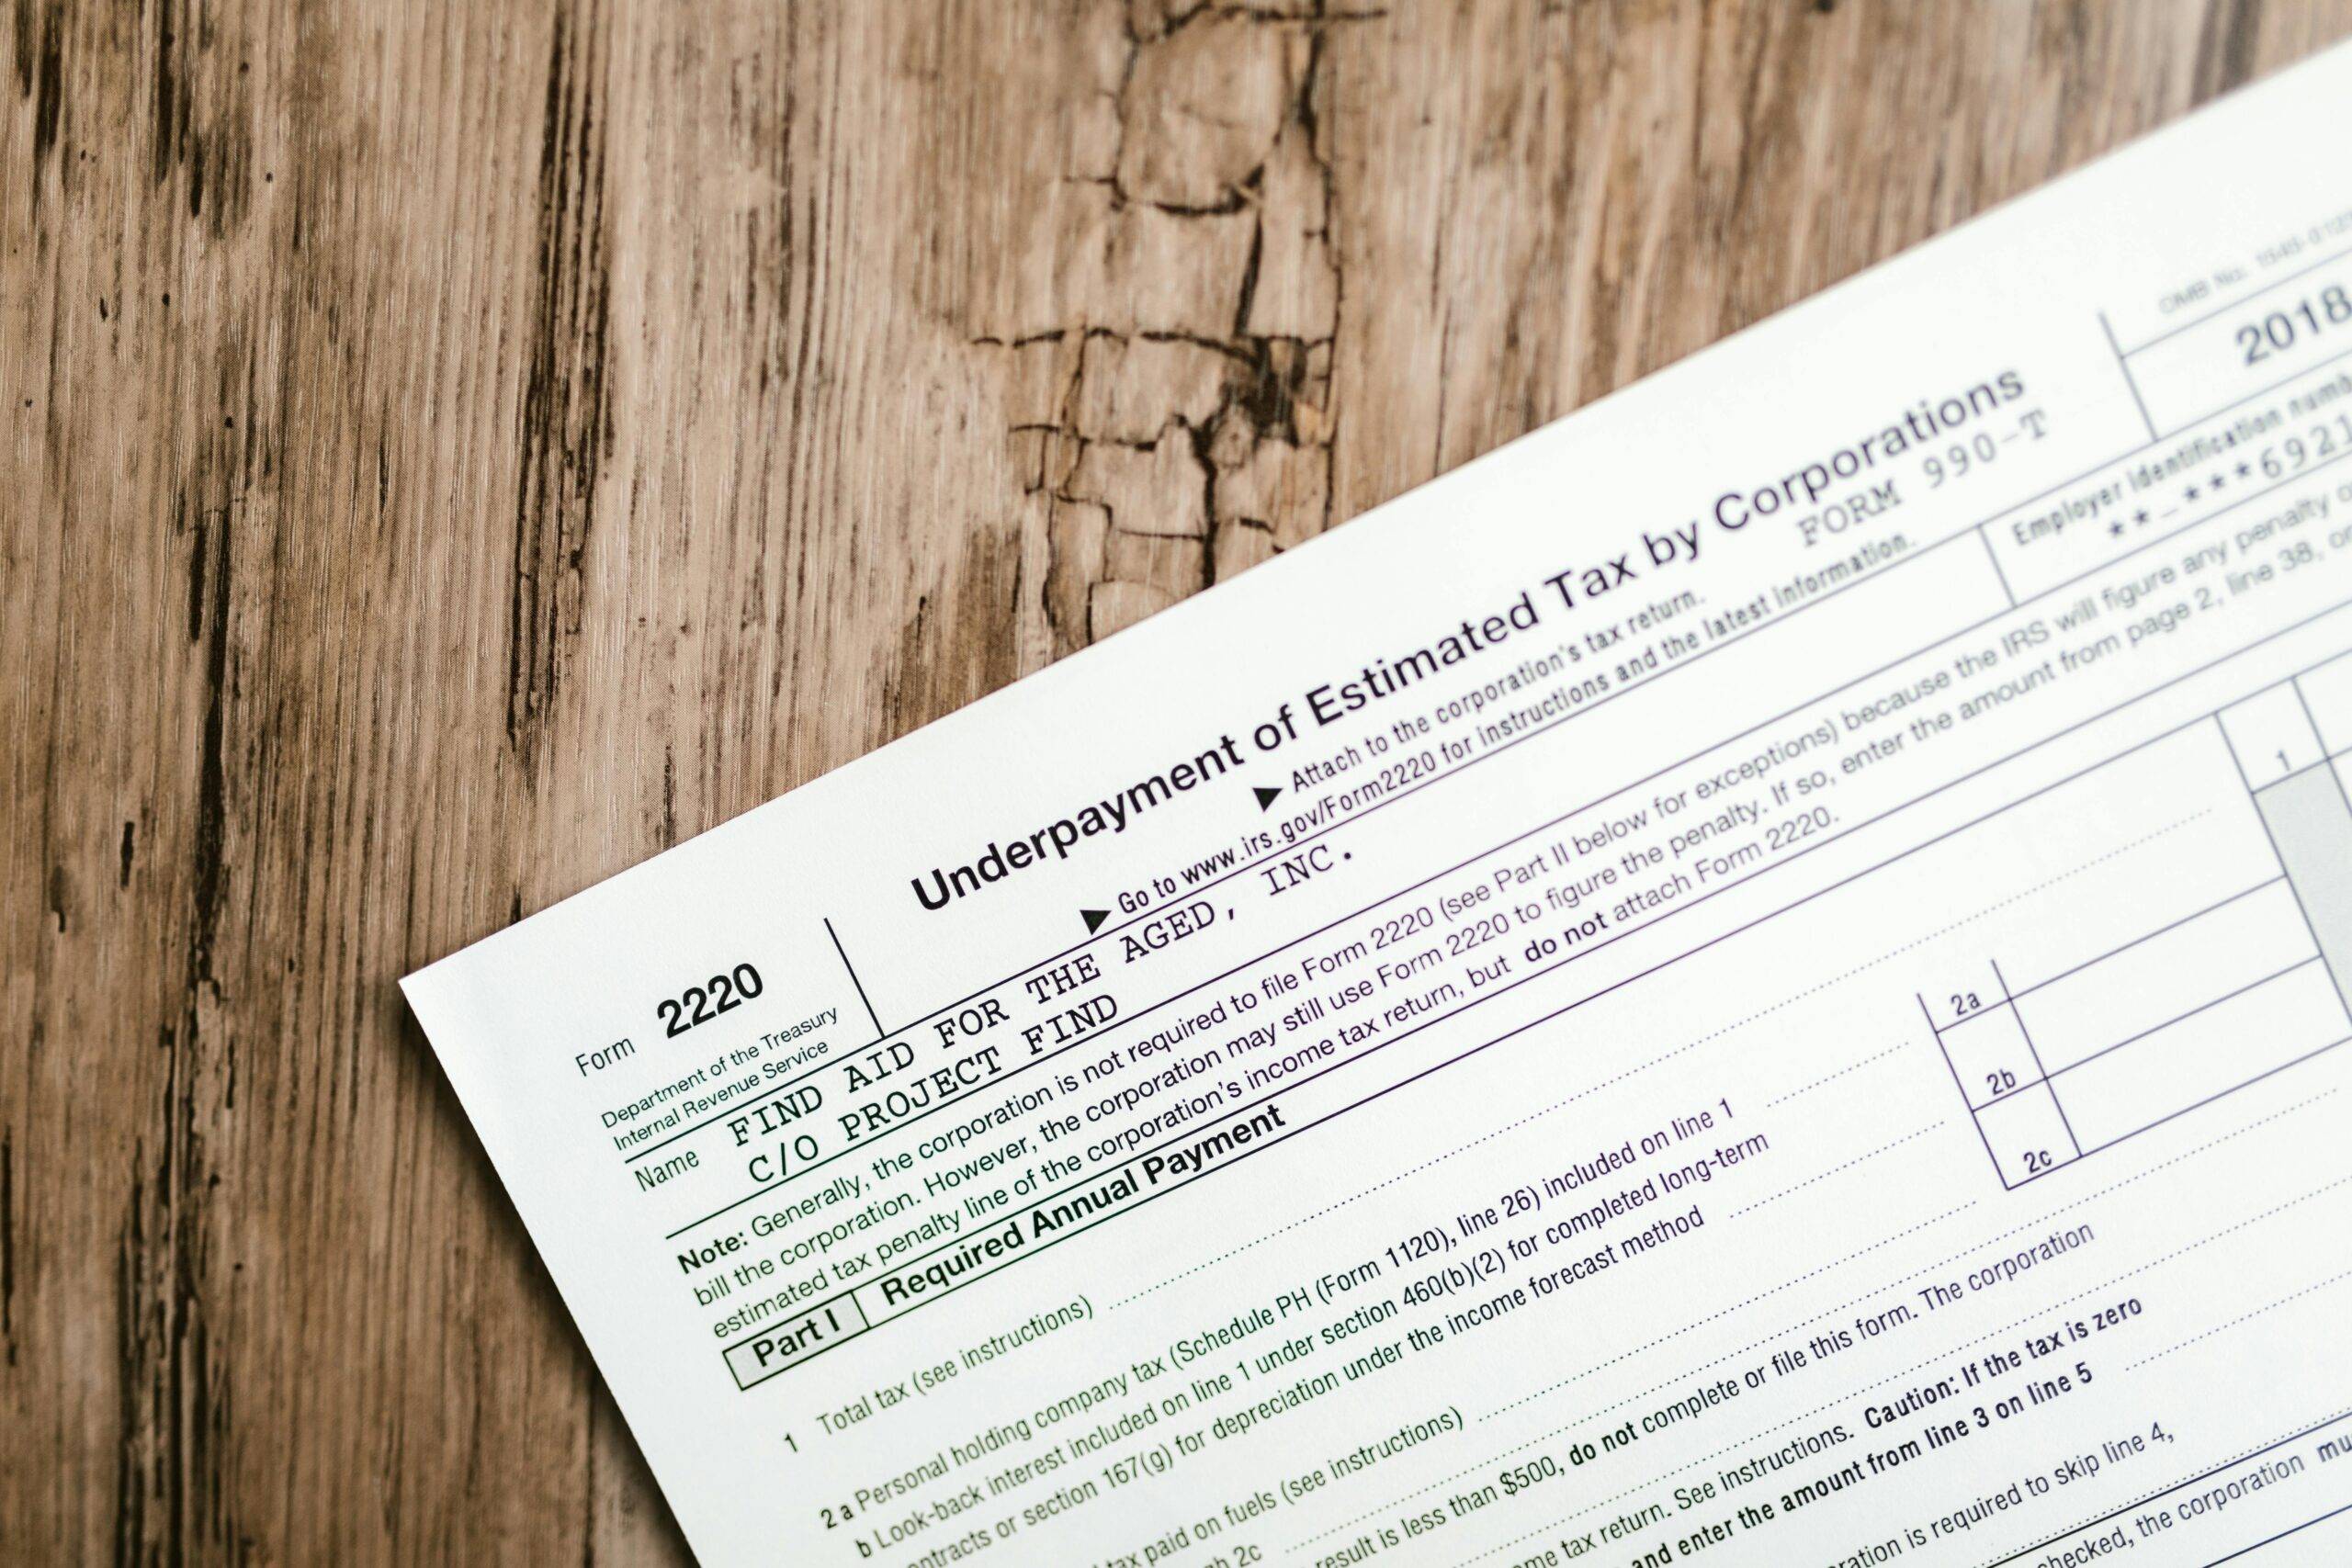 OMB No. 1545-012
Form 2220
Underpayment of Estimated Tax by Corporations
2018
FORM 990-T
Department of the Treasury
Internal Revenue Service
▶ Attach to the corporation's tax return.
▶ Go to www.irs.gov/Form2220 for instructions and the latest information.
Name
FIND AID FOR THE AGED, INC.
C/O PROJECT FIND
Employer identification numb
**-***6921
Note: Generally, the corporation is not required to file Form 2220 (see Part II below for exceptions) because the IRS will figure any penalty o
bill the corporation. However, the corporation may still use Form 2220 to figure the penalty. If so, enter the amount from page 2, line 38, on
estimated tax penalty line of the corporation's income tax return, but do not attach Form 2220.
Part I Required Annual Payment
1 Total tax (see instructions) 1
2 a Personal holding company tax (Schedule PH (Form 1120), line 26) included on line 1 2a
b Look-back interest included on line 1 under section 460(b)(2) for completed long-term
ontracts or section 167(g) for depreciation under the income forecast method 2b
tax paid on fuels (see instructions) 2c
gh 2c
result is less than $500, do not complete or file this form. The corporation
ome tax return. See instructions. Caution: If the tax is zero
and enter the amount from line 3 on line 5
ration is required to skip line 4,
checked, the corporation mu